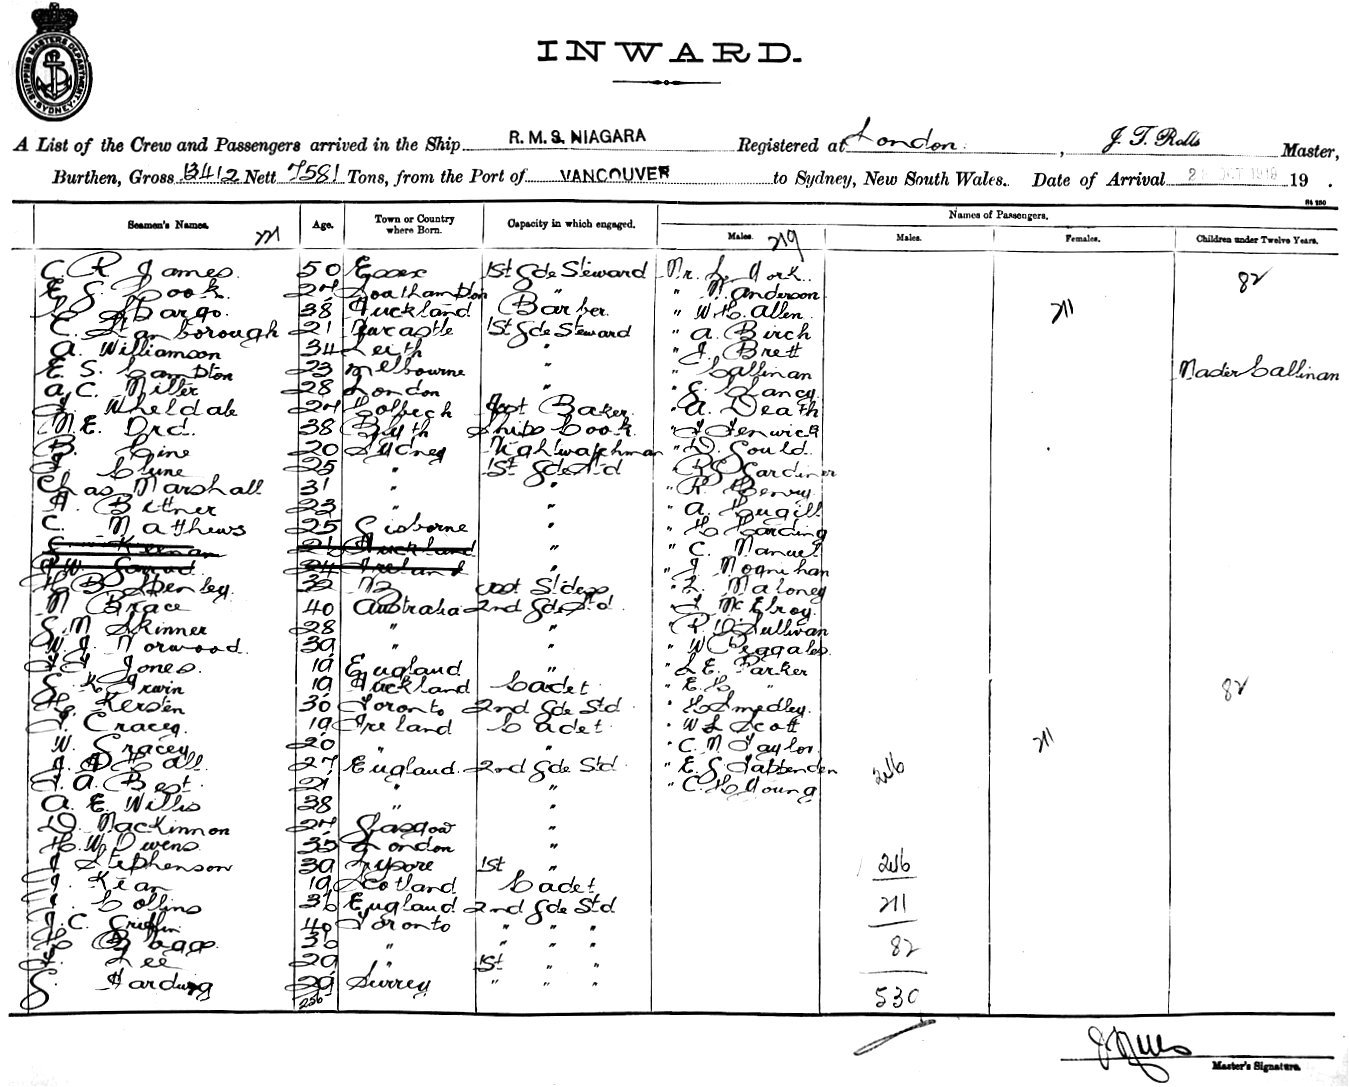 SHIPPING MASTERS DEPARTMENT SYDNEY
INWARD.
A List of the Crew and Passengers arrived in the Ship R.M.S. NIAGARA Registered at London , J. T. Rolls Master,
Burthen, Gross 13412 Nett 7581 Tons, from the Port of VANCOUVER to Sydney, New South Wales. Date of Arrival OCT 1919 19 .
Names of Passengers.
Seamen's Names. Age. Town or Country where Born. Capacity in which engaged. Males. Males. Females. Children under Twelve Years.
219
C. R James. 50 Essex 1st Gde Steward Mr. L. York. 82
E. G. Cook. 27 Southampton " " W. Anderson
Hargo. 38 Auckland Barber. " W H. Allen. 211
C. Hanborough 21 Newcastle 1st Gde Steward " A. Birch
A. Williamson 34 Leith " " J. Brett
E. S. Campton 23 Melbourne " " Callinan Master Callinan
A. C. Miller 28 London " " S. Clancy
Wheldale 27 Holbech Asst Baker. " A. Death
M. E. Ord. 38 Blyth Ships Cook. " Fenwick
B. Cine 20 Sydney Nightwatchman " D. Gould
Clune 25 " 1st Gde Std " Gardiner
Chas Marshall 31 " " " R. Henry
H. Bittner 23 " " " A. Hugill
C. Matthews 25 Gisborne " " H Harding
Keenan Auckland " " C. Manuel
24 Ireland " " J Moynihan
H. B. Henley. 32 NZ " L. Maloney
N Brace 40 Australia 2nd Gde Std. " J McElroy
G. M. Skinner 28 " " " P. O'Sullivan
W. J. Norwood. 39 " " " W Peggales
Jones. 19 England " " L. E. Parker
G. K. Irwin 19 Auckland Cadet. " E. H. " 82
H. Kersten 30 Toronto 2nd Gde Std. " H Smedley.
J. Cracey. 19 Ireland Cadet. " W L Scott
W. Gracey 20 " " " C. N Taylor 211
Hall 27 England. 2nd Gde Std. " E. G Tapbenden 236
A. Best. 21 " " " C. H Young
A. E. Willis 38 " "
D. MacKinnon 27 Glasgow "
H. W. Owens. 35 London "
J Stephenson 39 1st " 236
J. Kean 19 Scotland Cadet.
Collins 36 England 2nd Gde Std 211
J. C. Griffin 40 Toronto " " "
H Boggs. 36 " " " " 82
Lee 29 " 1st " "
G. Harding 29 Surrey " " " 530
Master's Signature.